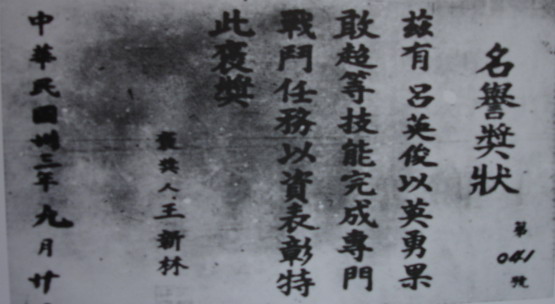 名譽獎狀
第041號
茲有 呂英俊以英勇果
敢超等技能完成專門
戰鬥任務以資表彰特
此褒獎
褒獎人 王新林
中華民國卅三年九月廿